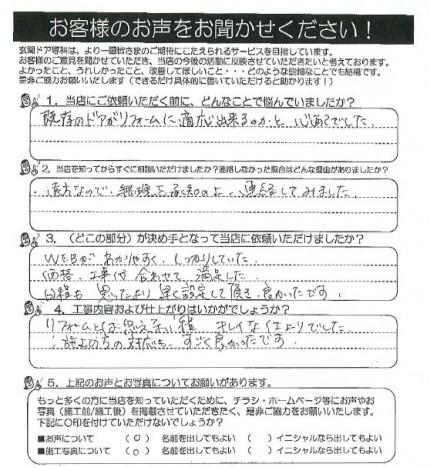 お客様のお声をお聞かせください！
玄関ドア専科は、より一層皆さまのご期待にこたえられるサービスを目指しています。
お客様のご意見を聞かせていただき、当店の今後の活動に反映させていただきたいと考えております。
よかったこと、うれしかったこと、改善してほしいこと・・・どのような些細なことでも結構です。
是非ご協力お願いします（できるだけ具体的に書いていただけると助かります！）
1．当店にご依頼いただく前に、どんなことで悩んでいましたか？
既存のドアがリフォームに適応出来るのかと、心配でした。
2．当店を知ってからすぐに相談いただけましたか？連絡しなかった場合はどんな理由がありましたか？
遠方なので、無理を承知の上、連絡してみました。
3．（どこの部分）が決め手となって当店に依頼いただけましたか？
WEBがわかりやすく、しっかりしていた。
価格、工事代合わせて、満足した
日程も思ったより早く設定して頂き、良かったです。
4．工事内容および仕上がりはいかがでしょうか？
リフォームとは思えない程、キレイな仕上りでした
施工の方の対応も、すごく良かったです。
5．上記のお声とお写真についてお願いがあります。
もっと多くの方に当店を知っていただくために、チラシ・ホームページ等にお声やお
写真（施工前/施工後）を掲載させていただきたく、是非ご協力をお願いいたします。
下記に○印を付けていただけないでしょうか？
■お声について （○） 名前を出してもよい （ ） イニシャルなら出してもよい
■施工写真について （○） 名前を出してもよい （ ） イニシャルなら出してもよい